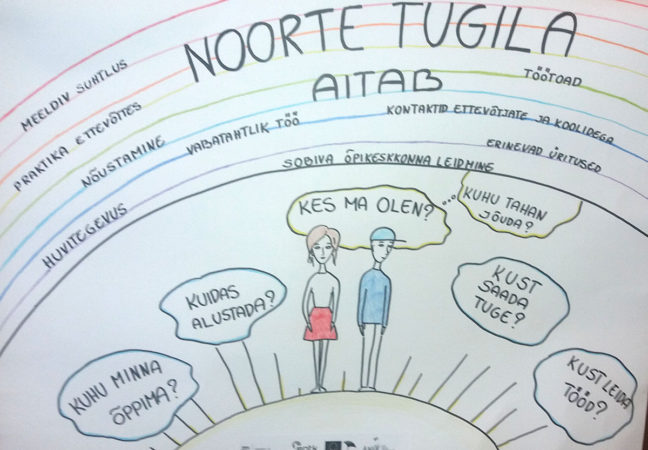 NOORTE TUGILA
AITAB
MEELDIV SUHTLUS
TÖÖTOAD
PRAKTIKA ETTEVÕTTES
KONTAKTID ETTEVÕTJATE JA KOOLIDEGA
NÕUSTAMINE
VABATAHTLIK TÖÖ
ERINEVAD ÜRITUSED
HUVITEGEVUS
SOBIVA ÕPIKESKKONNA LEIDMINE
KES MA OLEN?
KUHU TAHAN
JÕUDA?
KUIDAS
ALUSTADA?
KUST
SAADA
TUGE?
KUHU MINNA
ÕPPIMA?
KUST LEIDA
TÖÖD?